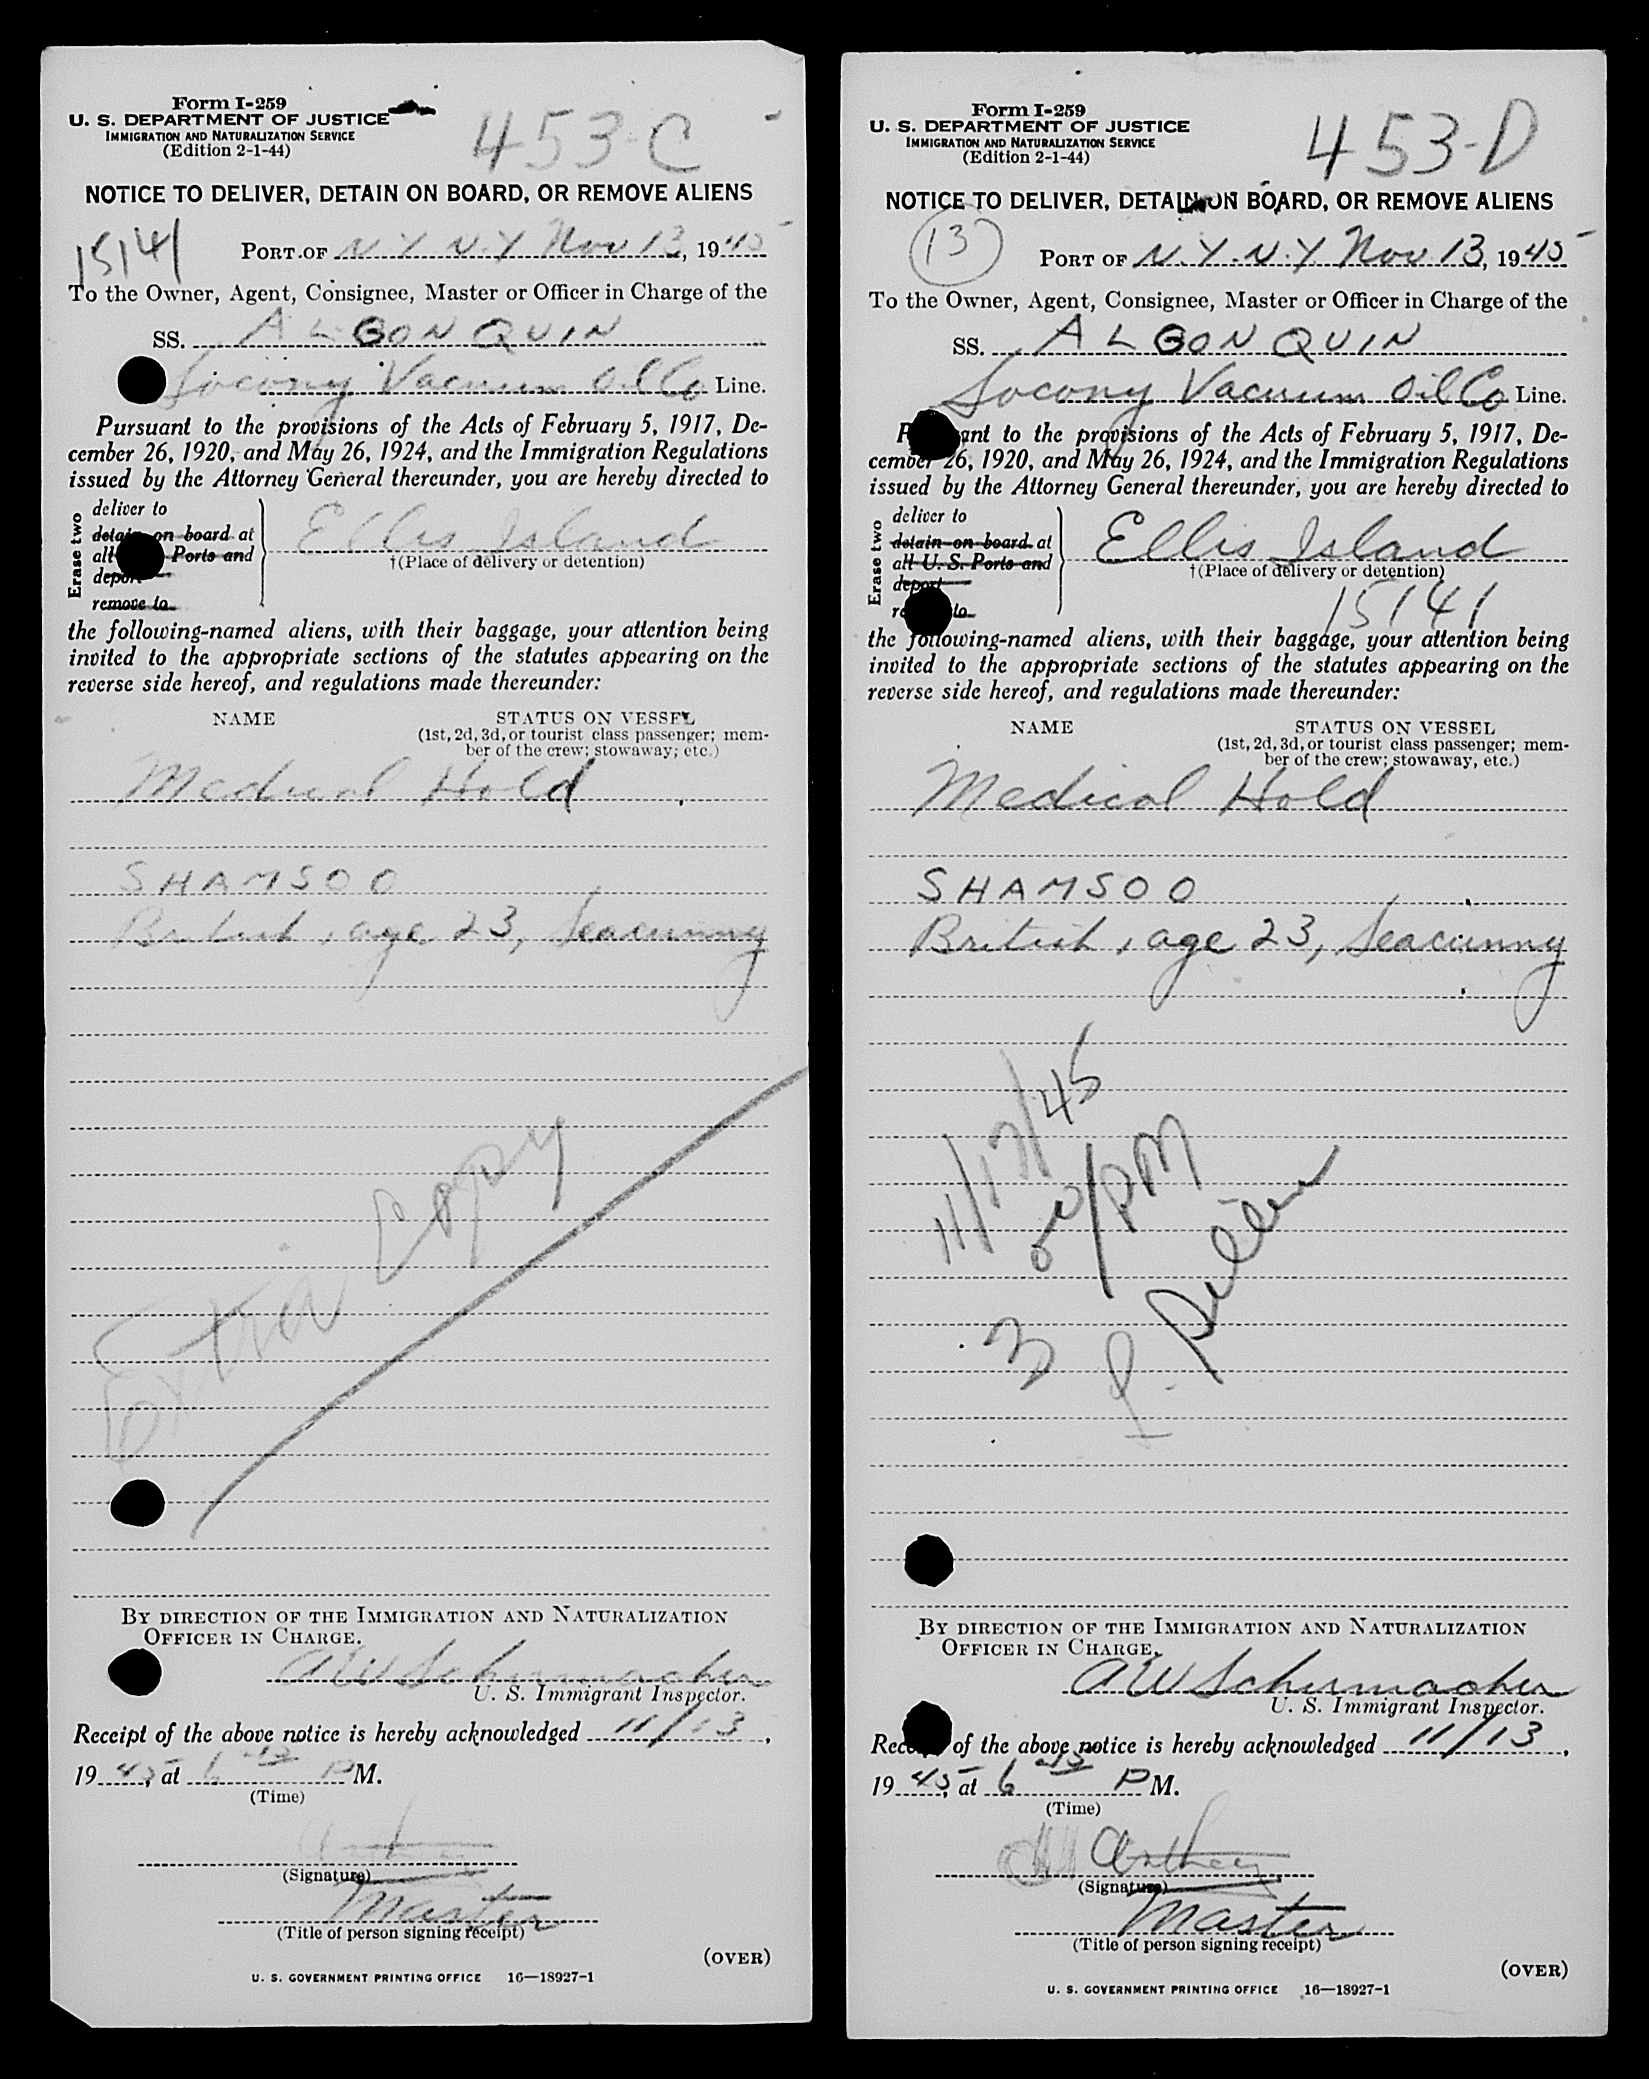 Form I-259
U. S. DEPARTMENT OF JUSTICE
IMMIGRATION AND NATURALIZATION SERVICE
(Edition 2-1-44)
453-C
NOTICE TO DELIVER, DETAIN ON BOARD, OR REMOVE ALIENS
15141
PORT OF N.Y. N.Y Nov 13, 1945
To the Owner, Agent, Consignee, Master or Officer in Charge of the
SS. ALGONQUIN
Socony Vacuum Oil Co Line.
Pursuant to the provisions of the Acts of February 5, 1917, De-
cember 26, 1920, and May 26, 1924, and the Immigration Regulations
issued by the Attorney General thereunder, you are hereby directed to
Erase two
deliver to
detain on board at
all Ports and
deport
remove to
Ellis Island
†(Place of delivery or detention)
the following-named aliens, with their baggage, your attention being
invited to the appropriate sections of the statutes appearing on the
reverse side hereof, and regulations made thereunder:
NAME STATUS ON VESSEL
(1st, 2d, 3d, or tourist class passenger; mem-
ber of the crew; stowaway; etc.)
Medical Hold
SHAMSOO
British, age 23, Seacunny
Extra Copy
BY DIRECTION OF THE IMMIGRATION AND NATURALIZATION
OFFICER IN CHARGE.
A W Schumacher
U. S. Immigrant Inspector.
Receipt of the above notice is hereby acknowledged 11/13,
1945, at 6 45 P M.
(Time)
(Signature)
Master
(Title of person signing receipt)
(OVER)
U. S. GOVERNMENT PRINTING OFFICE 16—18927-1
Form I-259
U. S. DEPARTMENT OF JUSTICE
IMMIGRATION AND NATURALIZATION SERVICE
(Edition 2-1-44)
453-D
NOTICE TO DELIVER, DETAIN ON BOARD, OR REMOVE ALIENS
13
PORT OF N.Y. N.Y Nov 13, 1945
To the Owner, Agent, Consignee, Master or Officer in Charge of the
SS. ALGONQUIN
Socony Vacuum Oil Co Line.
P ant to the provisions of the Acts of February 5, 1917, De-
cember 26, 1920, and May 26, 1924, and the Immigration Regulations
issued by the Attorney General thereunder, you are hereby directed to
Erase two
deliver to
detain on board at
all U. S. Ports and
deport
re to
Ellis Island
†(Place of delivery or detention)
15141
the following-named aliens, with their baggage, your attention being
invited to the appropriate sections of the statutes appearing on the
reverse side hereof, and regulations made thereunder:
NAME STATUS ON VESSEL
(1st, 2d, 3d, or tourist class passenger; mem-
ber of the crew; stowaway, etc.)
Medical Hold
SHAMSOO
British, age 23, Seacunny
11/13/45
PM
BY DIRECTION OF THE IMMIGRATION AND NATURALIZATION
OFFICER IN CHARGE.
A W Schumacher
U. S. Immigrant Inspector.
Rece of the above notice is hereby acknowledged 11/13,
1945, at 6 45 P M.
(Time)
(Signature)
Master
(Title of person signing receipt)
(OVER)
U. S. GOVERNMENT PRINTING OFFICE 16—18927-1